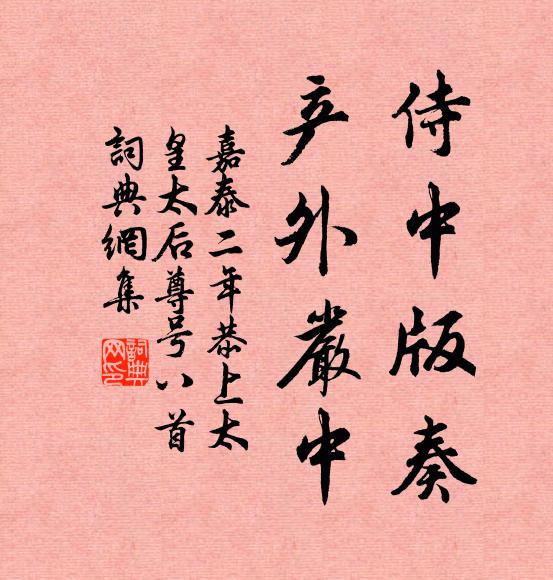 侍中版奏
外嚴中
嘉泰二年恭上太
皇太后尊号八首
詞典網集
詞典
网印